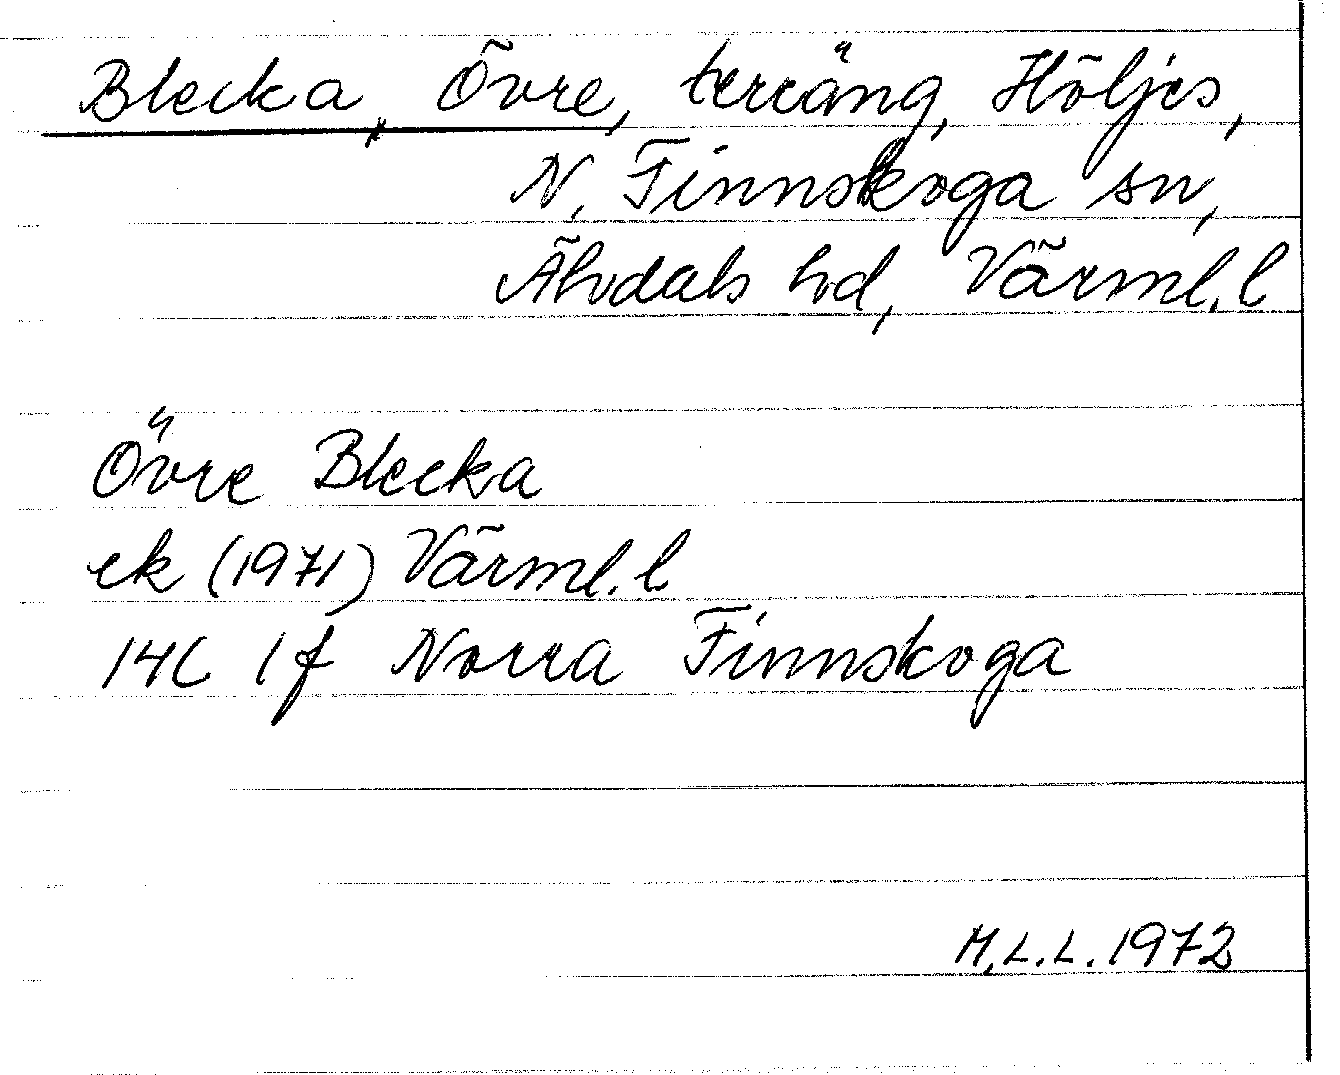 Blecka, Övre, terräng, Höljes,
N. Finnskoga sn,
Älvdals hd, Värml. l
Övre Blecka
ek (1971) Värml. l
14C 1f Norra Finnskoga
M.L.L. 1972